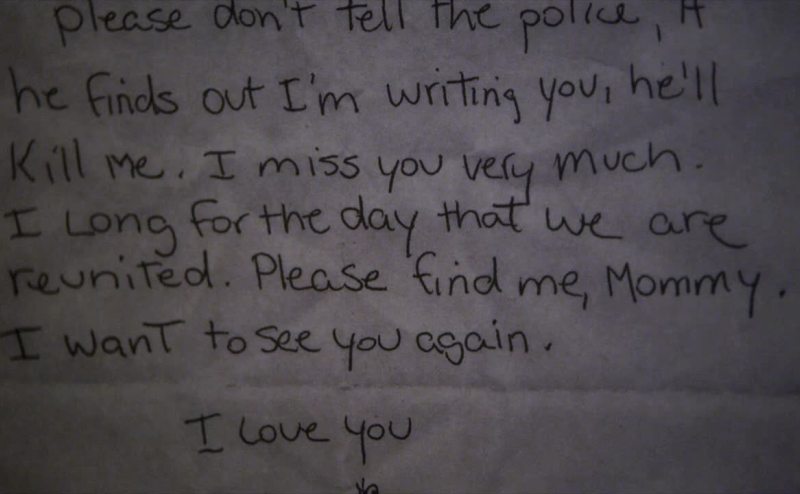 please don't tell the police, If
he finds out I'm writing you, he'll
Kill me. I miss you very much.
I Long for the day that we are
reunited. Please find me, Mommy.
I want to see you again.
I Love you